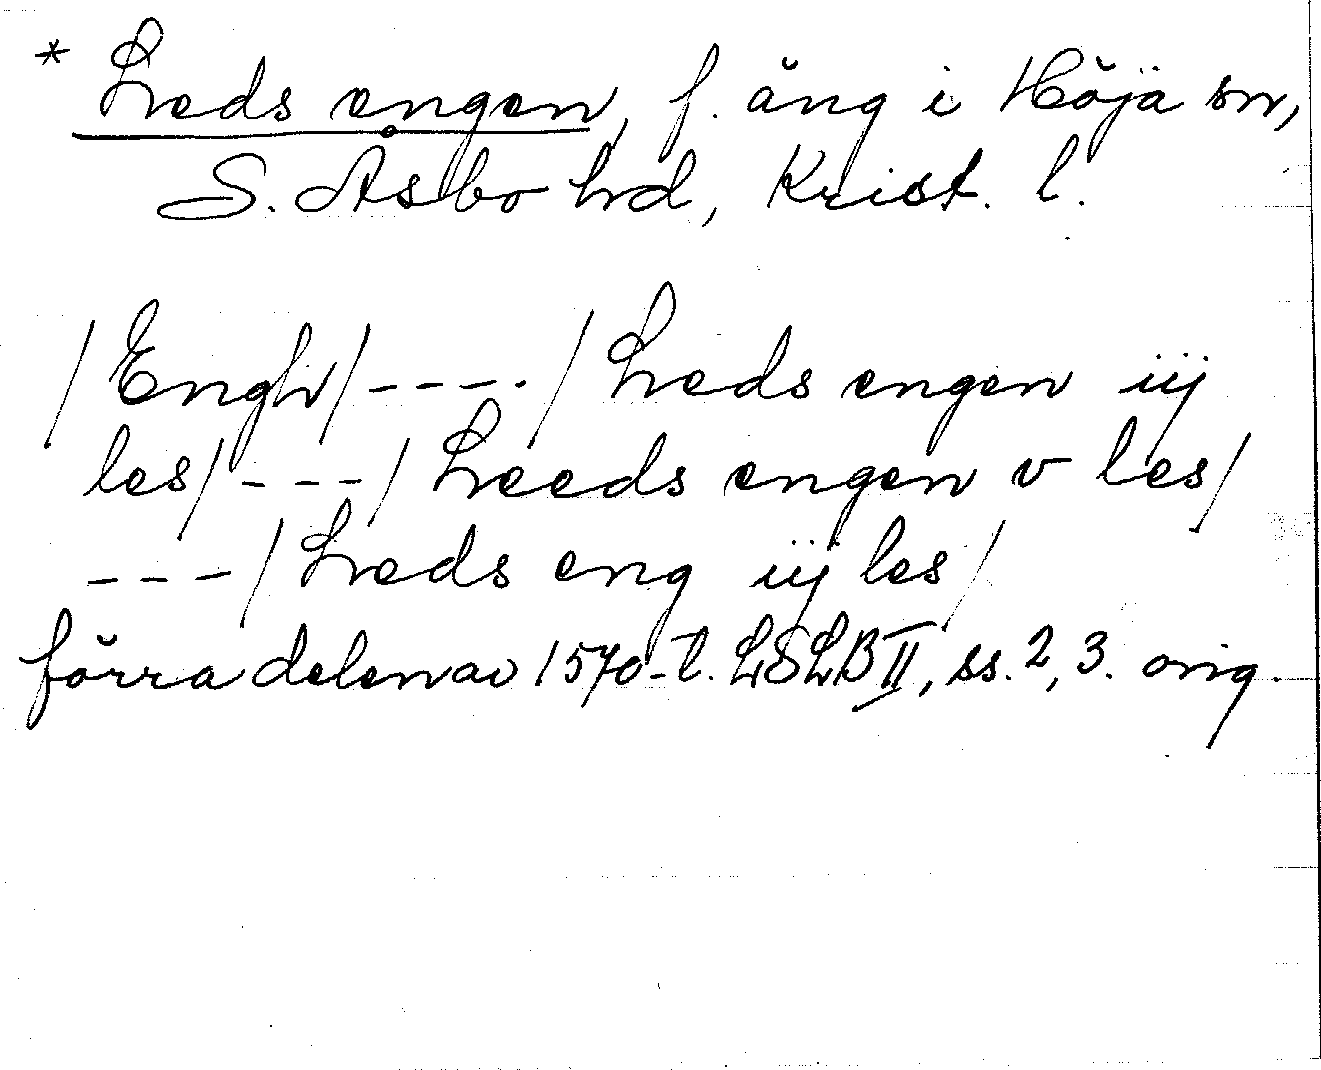 * Leds engen, f. äng i Höja sn,
S. Åsbo hd, Krist. l.
/Engh/----/Leds engen iij
les/---/Leeds engen v les/
---/Leds eng iij les/
förra delen av 1570-t. LSLB II, ss. 2, 3. orig.